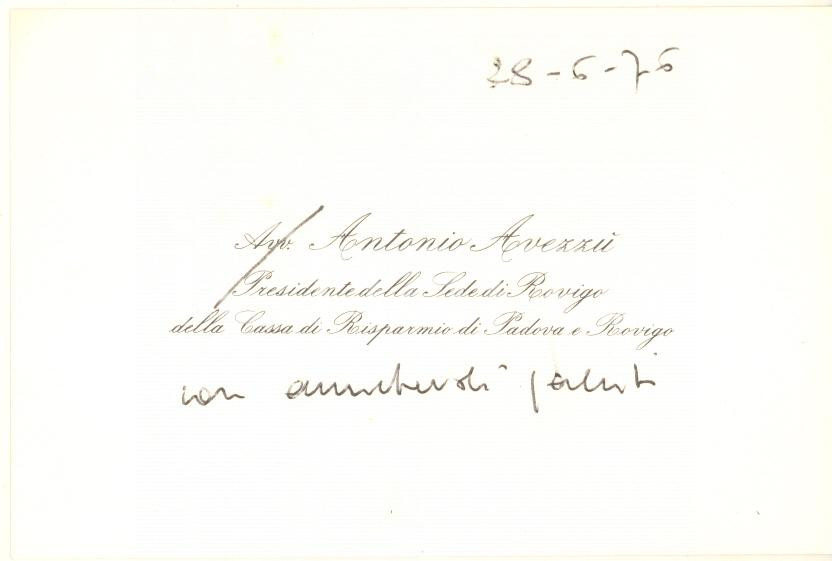 28-6-76
Avv. Antonio Avezzù
Presidente della Sede di Rovigo
della Cassa di Risparmio di Padova e Rovigo
con amichevoli saluti